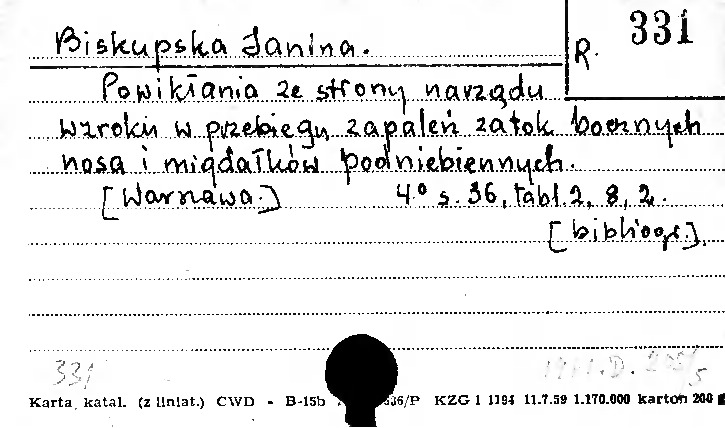 Biskupska Janina.
R. 331
Powikłania ze strony narządu
wzroku w przebiegu zapaleń zatok bocznych
nosa i migdałków podniebiennych.
[Warszawa.] 4.° s. 36, tabl. 2, 8, 2.
[bibliogr.].
331
Karta katal. (z liniat.) CWD - B-15b 36/P KZG 1 1194 11.7.59 1.170.000 karton 200